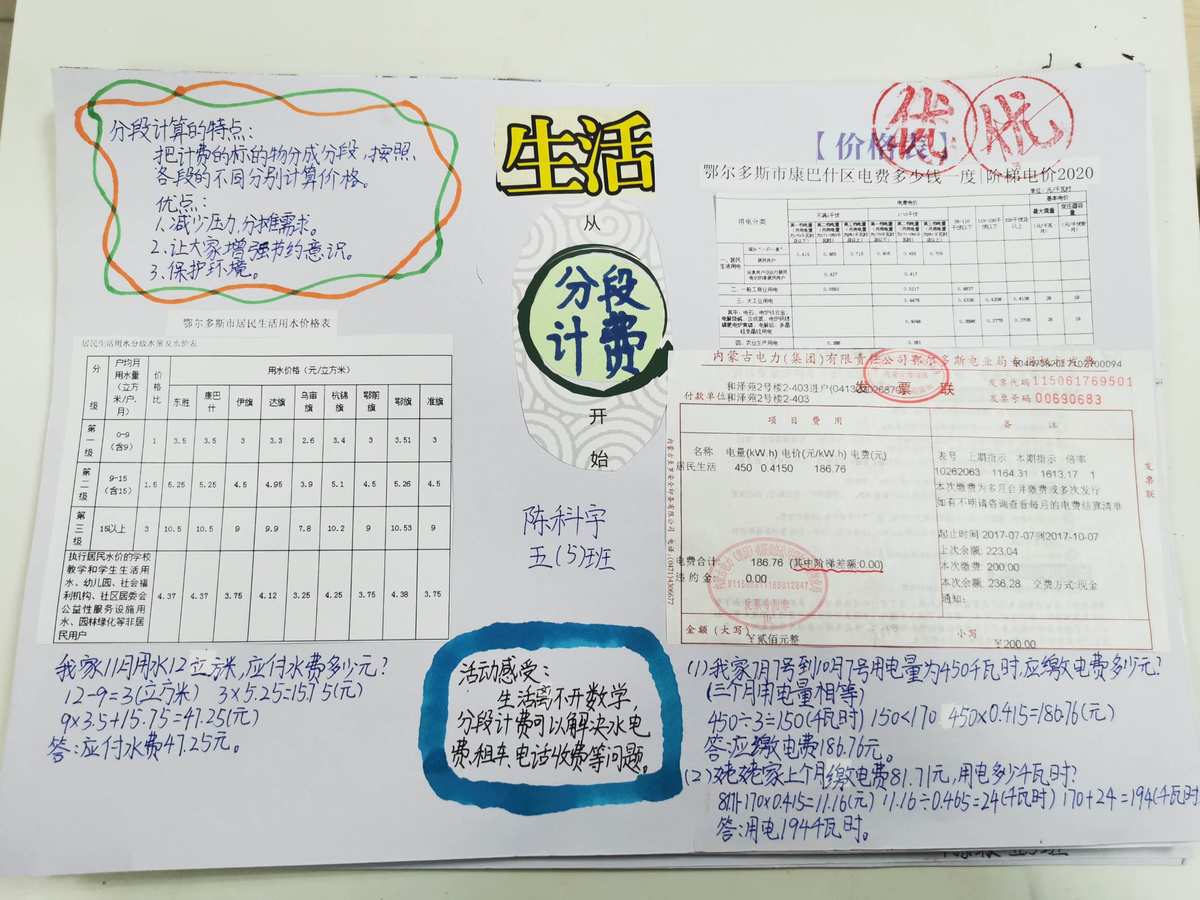 分段计算的特点：
把计费的标的物分成分段，按照
各段的不同分别计算价格。
优点：
1.减少压力，分摊需求。
2.让大家增强节约意识。
3.保护环境。
鄂尔多斯市居民生活用水价格表
居民生活用水分级水量及水价表
分级 户均月用水量（立方米/户.月） 价格比 用水价格（元/立方米）
东胜 康巴什 伊旗 达旗 乌审旗 杭锦旗 鄂前旗 鄂旗 准旗
第一级 0-9（含9） 1 3.5 3.5 3 3.3 2.6 3.4 3 3.51 3
第二级 9-15（含15） 1.5 5.25 5.25 4.5 4.95 3.9 5.1 4.5 5.26 4.5
第三级 15以上 3 10.5 10.5 9 9.9 7.8 10.2 9 10.53 9
执行居民水价的学校教学和学生生活用水、幼儿园、社会福利机构、社区居委会公益性服务设施用水、园林绿化等非居民用户 4.37 4.37 3.75 4.12 3.25 4.25 3.75 4.38 3.75
我家11月用水12立方米，应付水费多少元？
12-9=3(立方米) 3×5.25=15.75(元)
9×3.5+15.75=47.25(元)
答：应付水费47.25元。
生活
从
分段
计费
开
始
陈科宇
五(5)班
活动感受：
生活离不开数学，
分段计费可以解决水电
费、租车、电话收费等问题。
优
优
【价格表】
鄂尔多斯市康巴什区电费多少钱一度|阶梯电价2020
单位：元/千瓦时
用电分类
电度电价
基本电价
最大需量
一、居民生活用电
二、一般工商业用电
三、大工业用电
四、农业生产用电
内蒙古电力(集团)有限责任公司鄂尔多斯电业局
和泽苑2号楼2-403进户
发票联
发票代码 115061769501
付款单位 和泽苑2号楼2-403
发票号码 00690683
项目费用 备注
名称 电量(kW.h) 电价(元/kW.h) 电费(元)
居民生活 450 0.4150 186.76
表号 上期指示 本期指示 倍率
10262063 1164.31 1613.17 1
本次缴费为多月合并缴费或多次发行
如有不明请咨询查看每月的电费结算清单
起止时间:2017-07-07到2017-10-07
上次余额: 223.04
电费合计: 186.76 (其中阶梯差额:0.00)
本次缴费: 200.00
违约金: 0.00
本次余额: 236.28 交费方式:现金
通知:
金额（大写） ￥贰佰元整 小写 ￥200.00
发票联
(1)我家7月7号到10月7号用电量为450千瓦时，应缴电费多少元？
(三个月用电量相等)
450÷3=150(千瓦时) 150<170 450×0.415=186.76(元)
答：应缴电费186.76元。
(2)姥姥家上个月缴电费81.71元，用电多少千瓦时？
81.71-170×0.415=11.16(元) 11.16÷0.465=24(千瓦时) 170+24=194(千瓦时
答：用电194千瓦时。